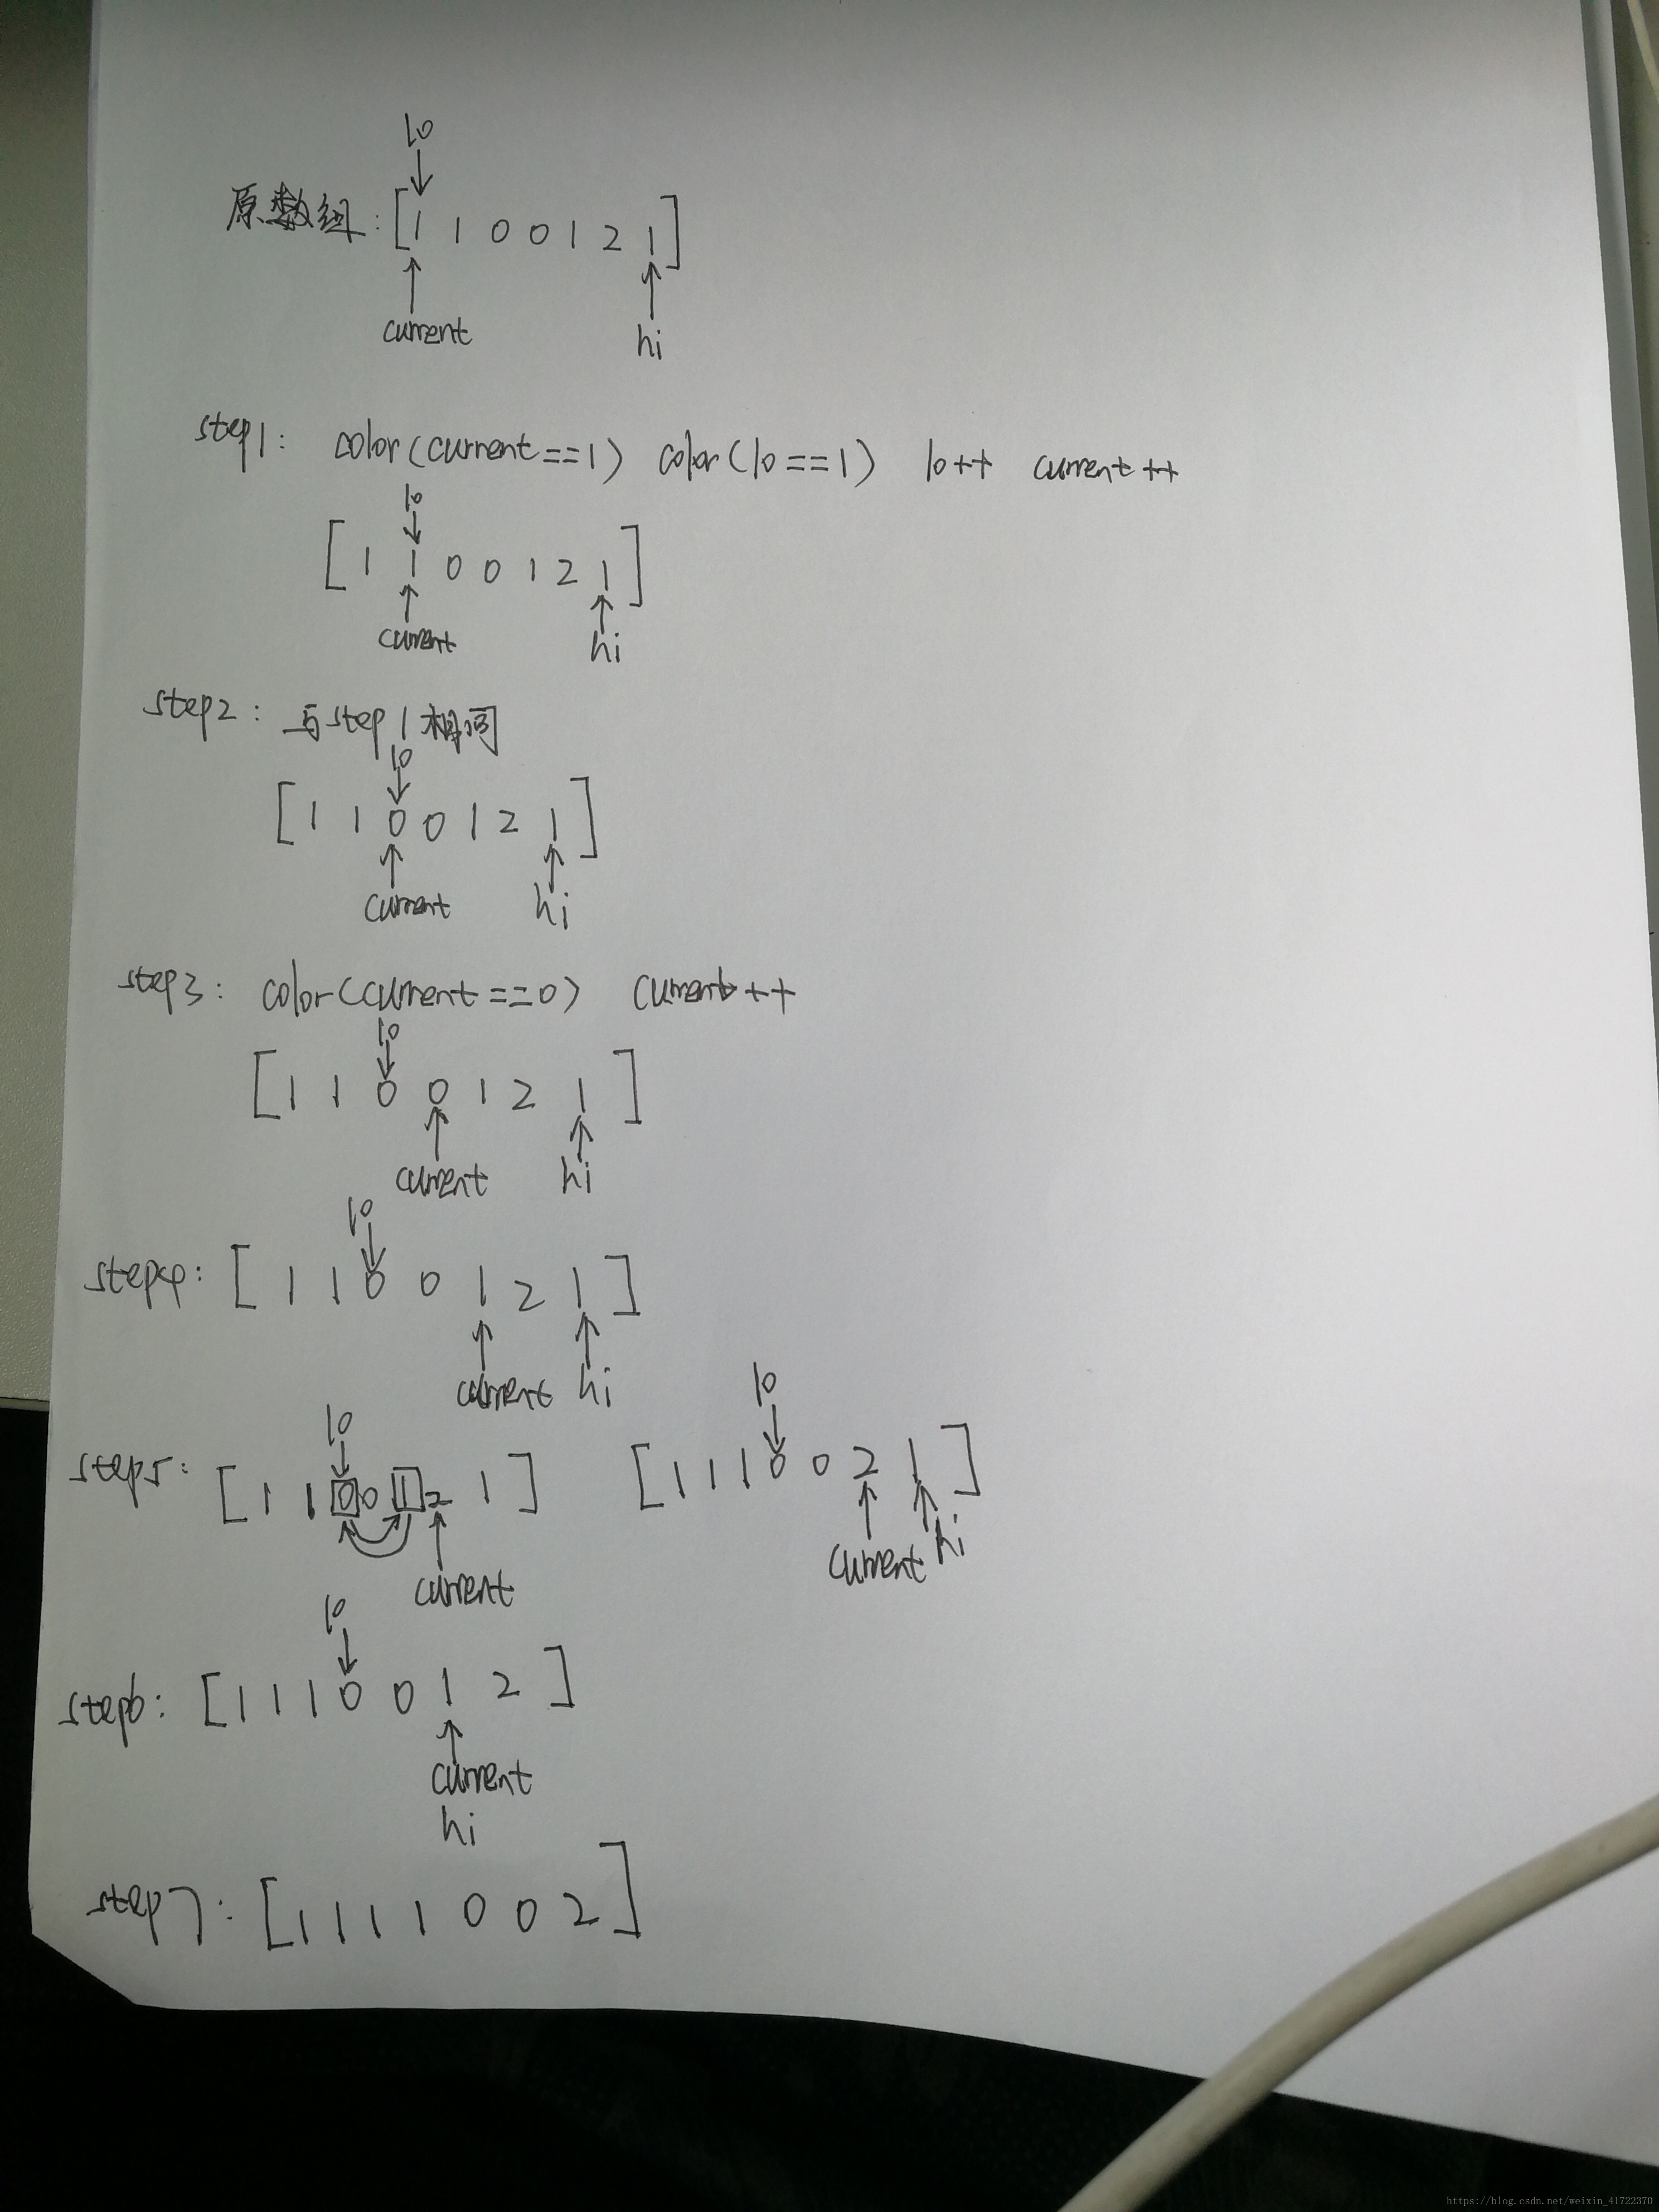 lo
原数组: [1 1 0 0 1 2 1]
current hi
step1: color(current==1) color(lo==1) lo++ current++
lo
[1 1 0 0 1 2 1]
current hi
step2: 与step1相同
lo
[1 1 0 0 1 2 1]
current hi
step3: color(current==0) current++
lo
[1 1 0 0 1 2 1]
current hi
lo
step4: [1 1 0 0 1 2 1]
current hi
lo lo
step5: [1 1 0 0 1 2 1] [1 1 1 0 0 2 1]
current current hi
lo
step6: [1 1 1 0 0 1 2]
current
hi
step7: [1 1 1 1 0 0 2]
https://blog.csdn.net/weixin_41722370